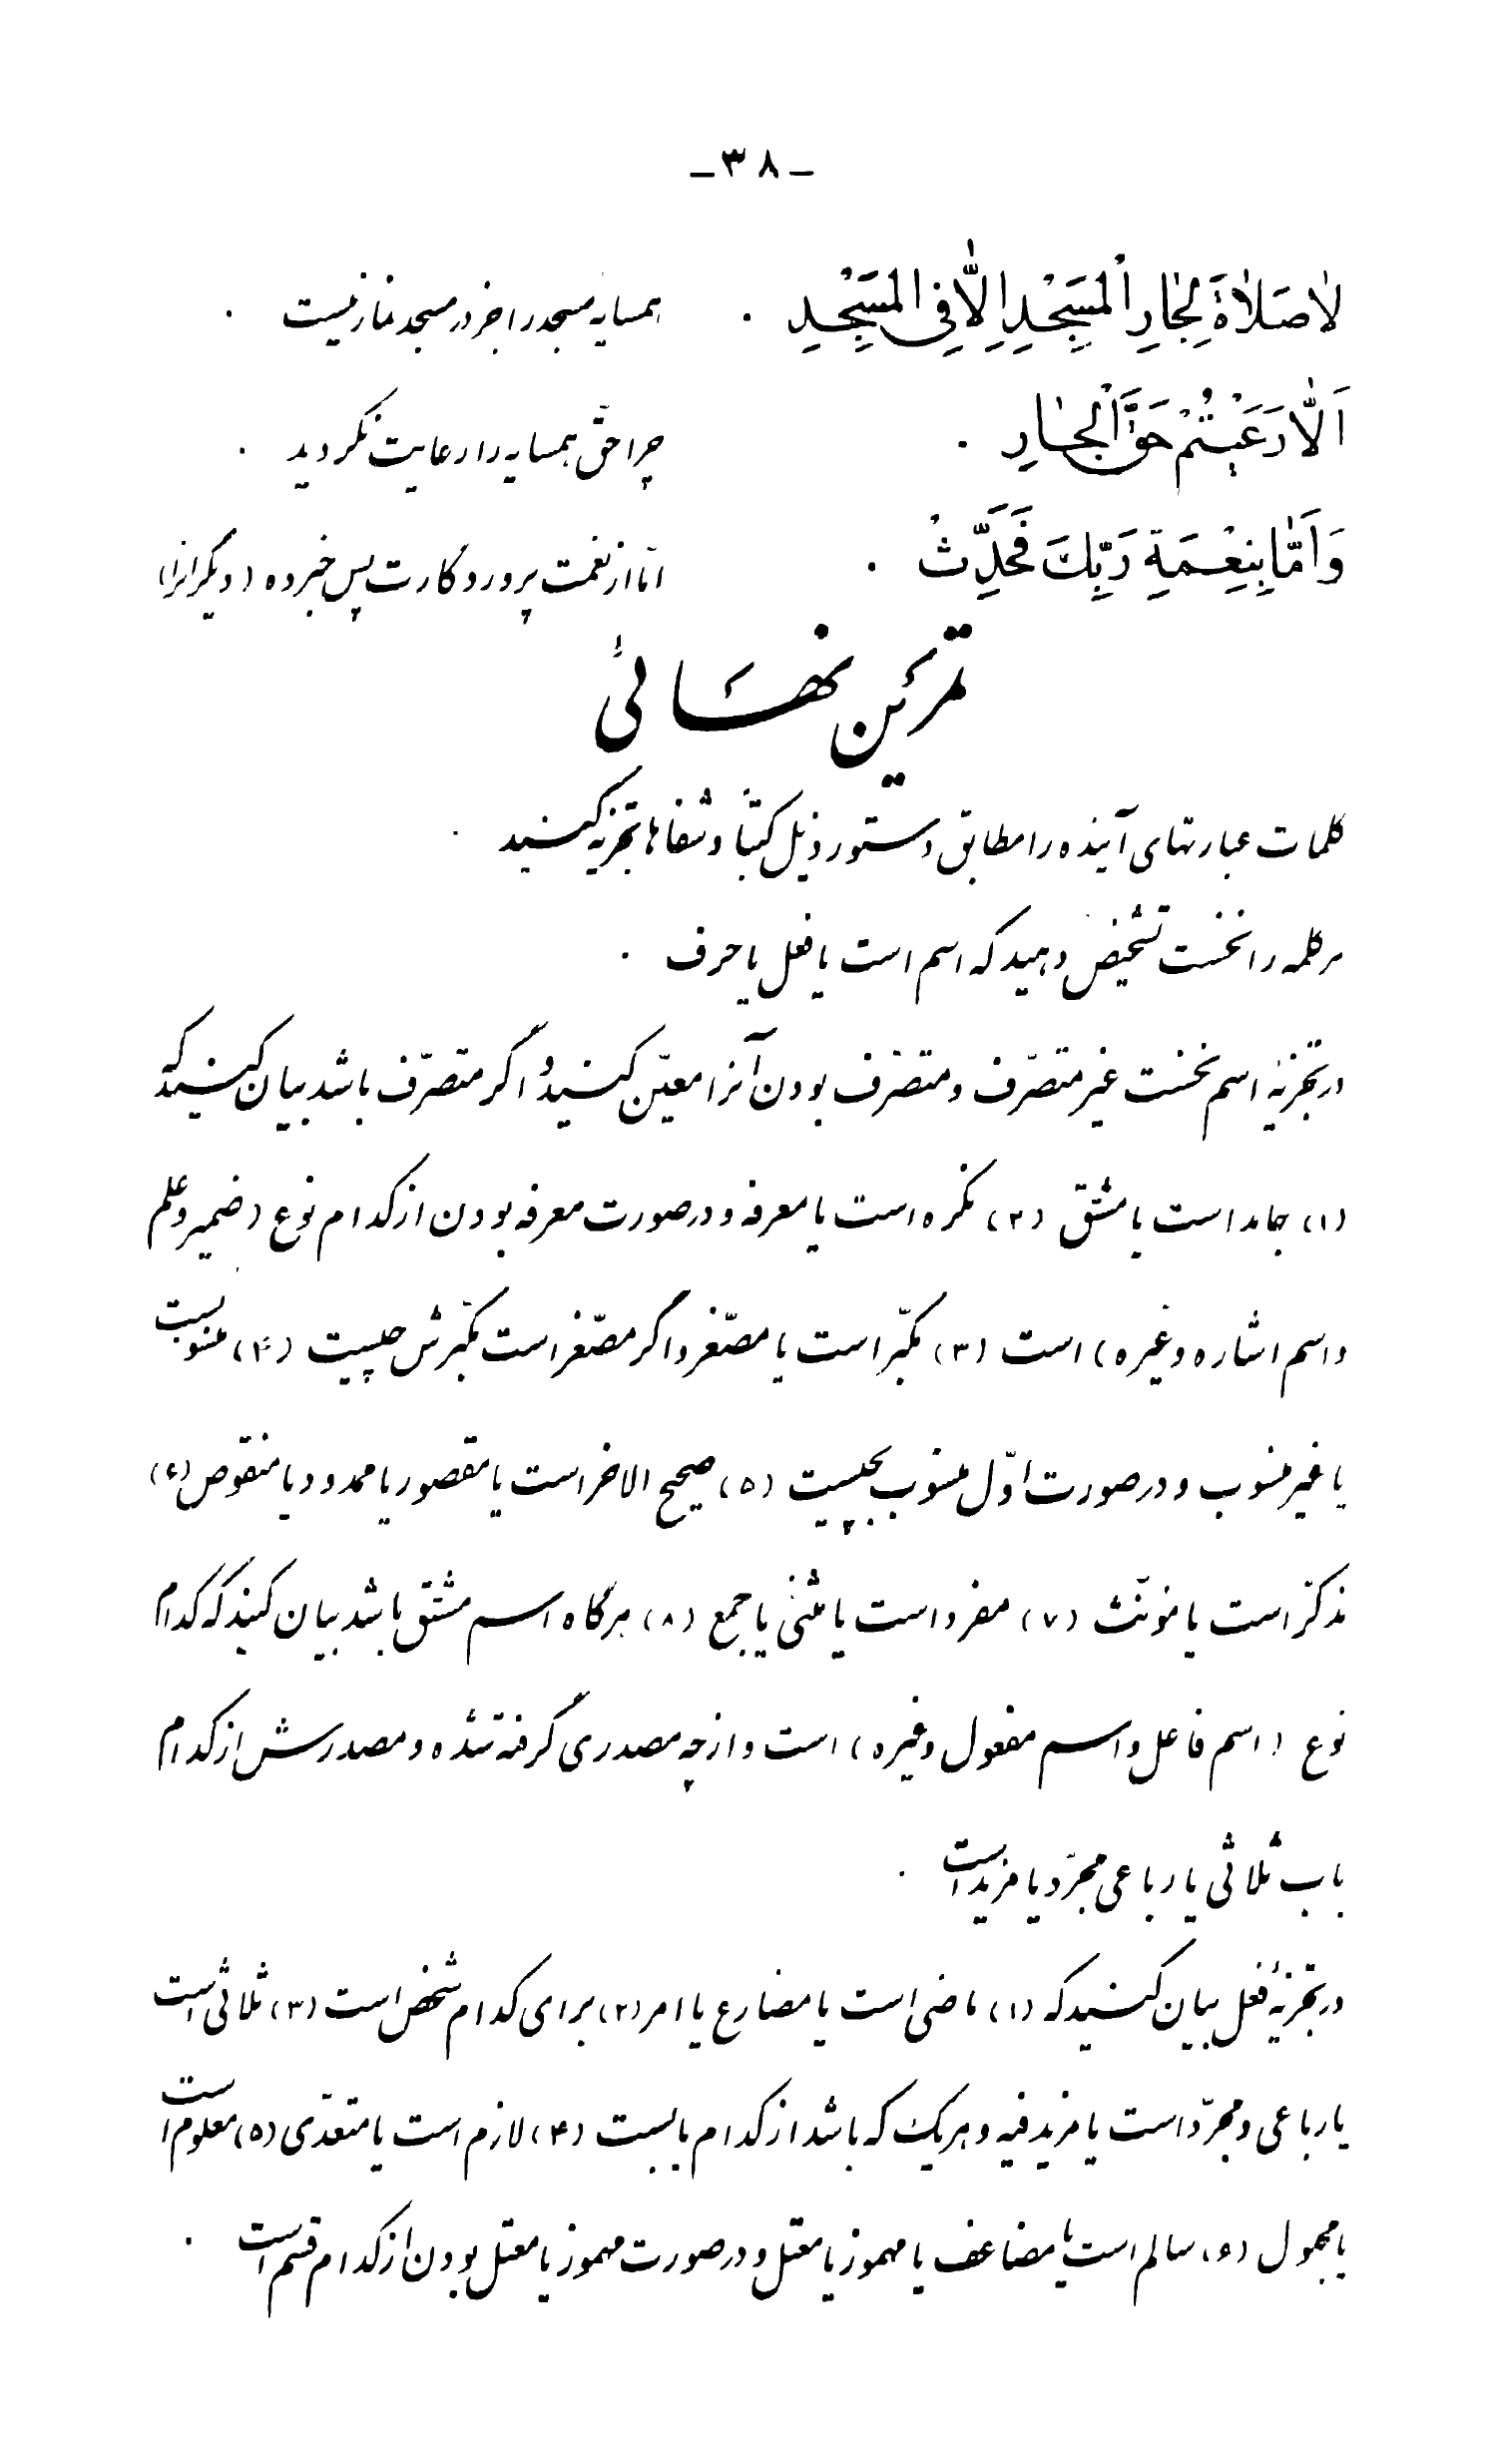 -۳۸-
لٰا صَلٰاةَ لِجٰارِ الْمَسْجِدِ اِلّٰا فِی الْمَسْجِدِ . همسایه مسجد را جز در مسجد نماز نیست .
اَلّٰا رَعَیْتُمْ حَقَّ الْجٰارِ . چرا حقّ همسایه را رعایت نکردید .
وَ اَمّٰا بِنِعْمَةِ رَبِّكَ فَحَدِّثْ . امّا از نعمت پروردگارت پس خبر ده (دیگرانرا)
تمرین نهائی
کلمات عبارتهای آینده را مطابق دستور ذیل کتباً و شفاها تجزیه کنید .
هر کلمه را نخست تشخیص دهید که اسم است یا فعل یا حرف .
در تجزیهٔ اسم نخست غیر متصرّف و متصرّف بودن آنرا معیّن کنید و اگر متصرّف باشد بیان کنید که
(۱) جامد است یا مشتقّ (۲) نکره است یا معرفه و در صورت معرفه بودن از کدام نوع (ضمیر و علم
و اسم اشاره و غیره) است (۳) مکبّر است یا مصغّر و اگر مصغّر است مکبّرش چیست (۴) منسوبست
یا غیر منسوب و در صورت اوّل منسوب بچیست (۵) صحیح الاخر است یا مقصور یا ممدود یا منقوص (۶)
مذکّر است یا مونّث (۷) مفرد است یا مثنیٰ یا جمع (۸) هرگاه اسم مشتق باشد بیان کنید که کدام
نوع (اسم فاعل و اسم مفعول و غیره) است و از چه مصدری گرفته شده و مصدرش از کدام
باب ثلاثی یا رباعی مجرّد یا مزید است .
در تجزیهٔ فعل بیان کنید که (۱) ماضی است یا مضارع یا امر (۲) برای کدام شخص است (۳) ثلاثی است
یا رباعی و مجرّد است یا مزید فیه و هریک که باشد از کدام بابست (۴) لازم است یا متعدّی (۵) معلوم است
یا مجهول (۶) سالم است یا مضاعف یا مهموز یا معتل و در صورت مهموز یا معتل بودن از کدام قسم است .